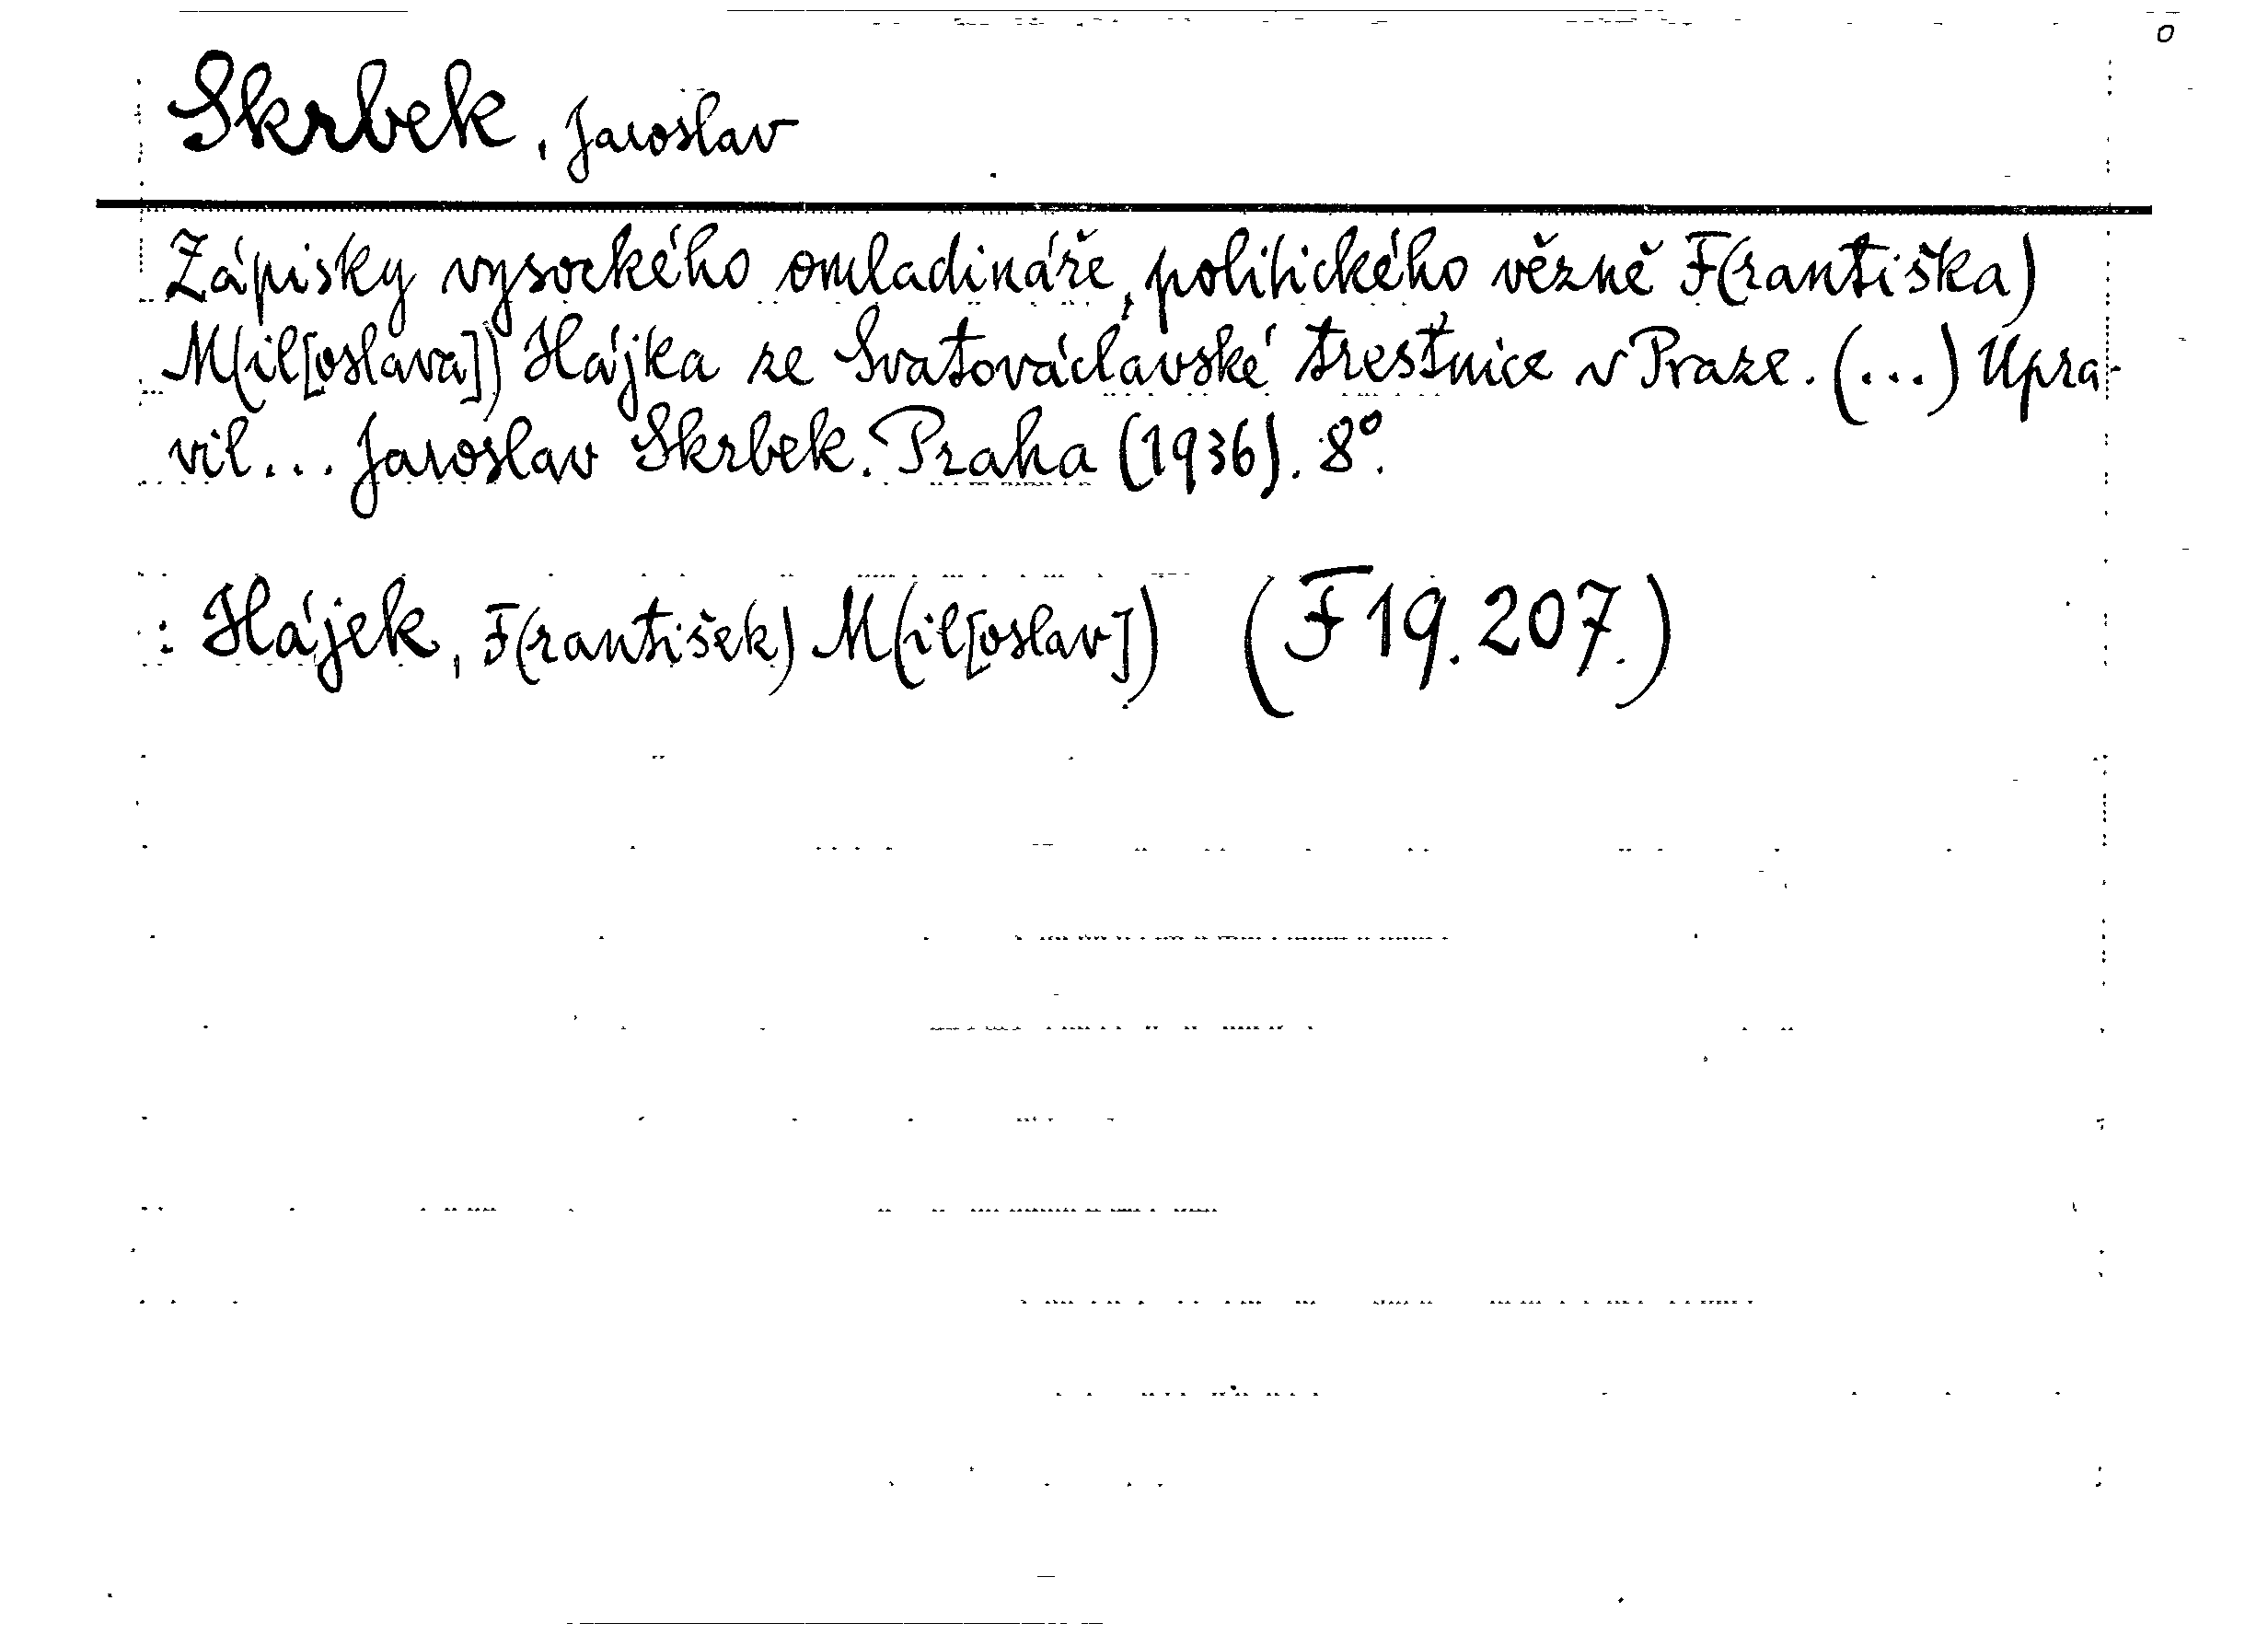 Skrbek, Jaroslav
Zápisky vysockého omladináře, politického vězně F(rantiška)
M(il[oslava]) Hájka ze Svatováclavské trestnice v Praze. (...) Upra-
vil... Jaroslav Skrbek. Praha (1936). 8°.
: Hájek, F(rantišek) M(il[oslav]) (F 19.207.)